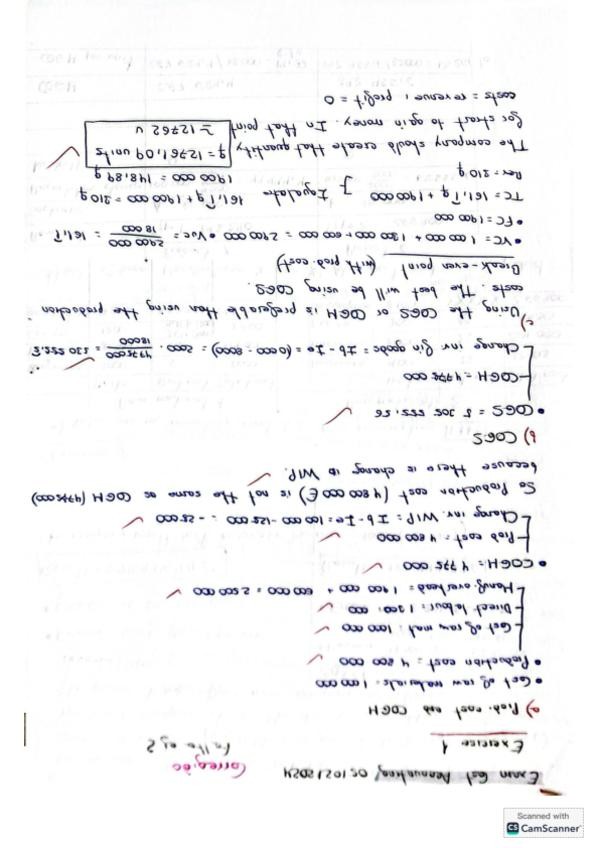 Exam Cost Accounting 05/02/2024
Correcção
Exercise 1
Falta ej 2
a) Prod. cost and COGM
• Cost of raw materials: 1 000 000
• Production cost = 4 800 000
- Cost of raw mat: 1 000 000
- Direct labour: 1 300 000
- Manf. overhead: 1 900 000 + 600 000 = 2 500 000
• COGM = 4 775 000
- Prod cost = 4 800 000
- Change inv. WIP = Ib - Ie = 100 000 - 125 000 = -25 000
So Production cost (4 800 000 €) is not the same as COGM (4775000)
because there is change in WIP.
b) COGS
• COGS = 5 305 555,56
- COGM = 4 775 000
- Change inv. fin. goods = Ib - Ie = (10 000 - 8000) = 2000 · 4775000/18000 = 530 555,5
c)
Using the COGS or COGM is preferable than using the production
costs. The best will be using COGS.
Break-even point (with prod. cost)
• VC = 1 000 000 + 1 300 000 + 600 000 = 2 900 000 • VUC = 2900 000/18 000 = 161,1
• FC = 1 900 000
TC = 161,1 q + 1 900 000 } Igualate 161,1 q + 1 900 000 = 210 q
Rev = 210 q
1 900 000 = 148,89 q
The company should create that quantity
q = 12 761,09 units
for start to gain money. In that point
≈ 12762 u
costs = revenue ; profit = 0
Scanned with
CS CamScanner